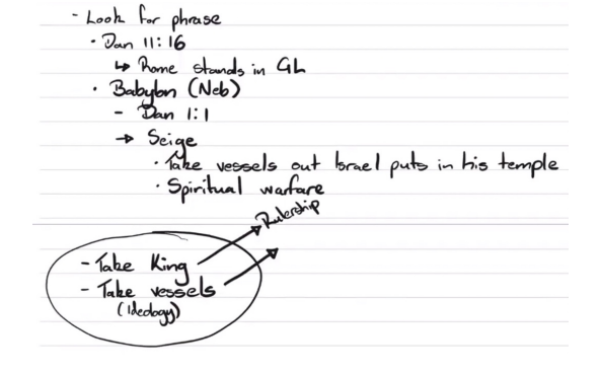 - Look for phrase
· Dan 11:16
↳ Rome stands in GL
· Babylon (Neb)
- Dan 1:1
→ Seige
· Take vessels out Israel puts in his temple
· Spiritual warfare
Rulership
- Take King
- Take vessels
(Ideology)